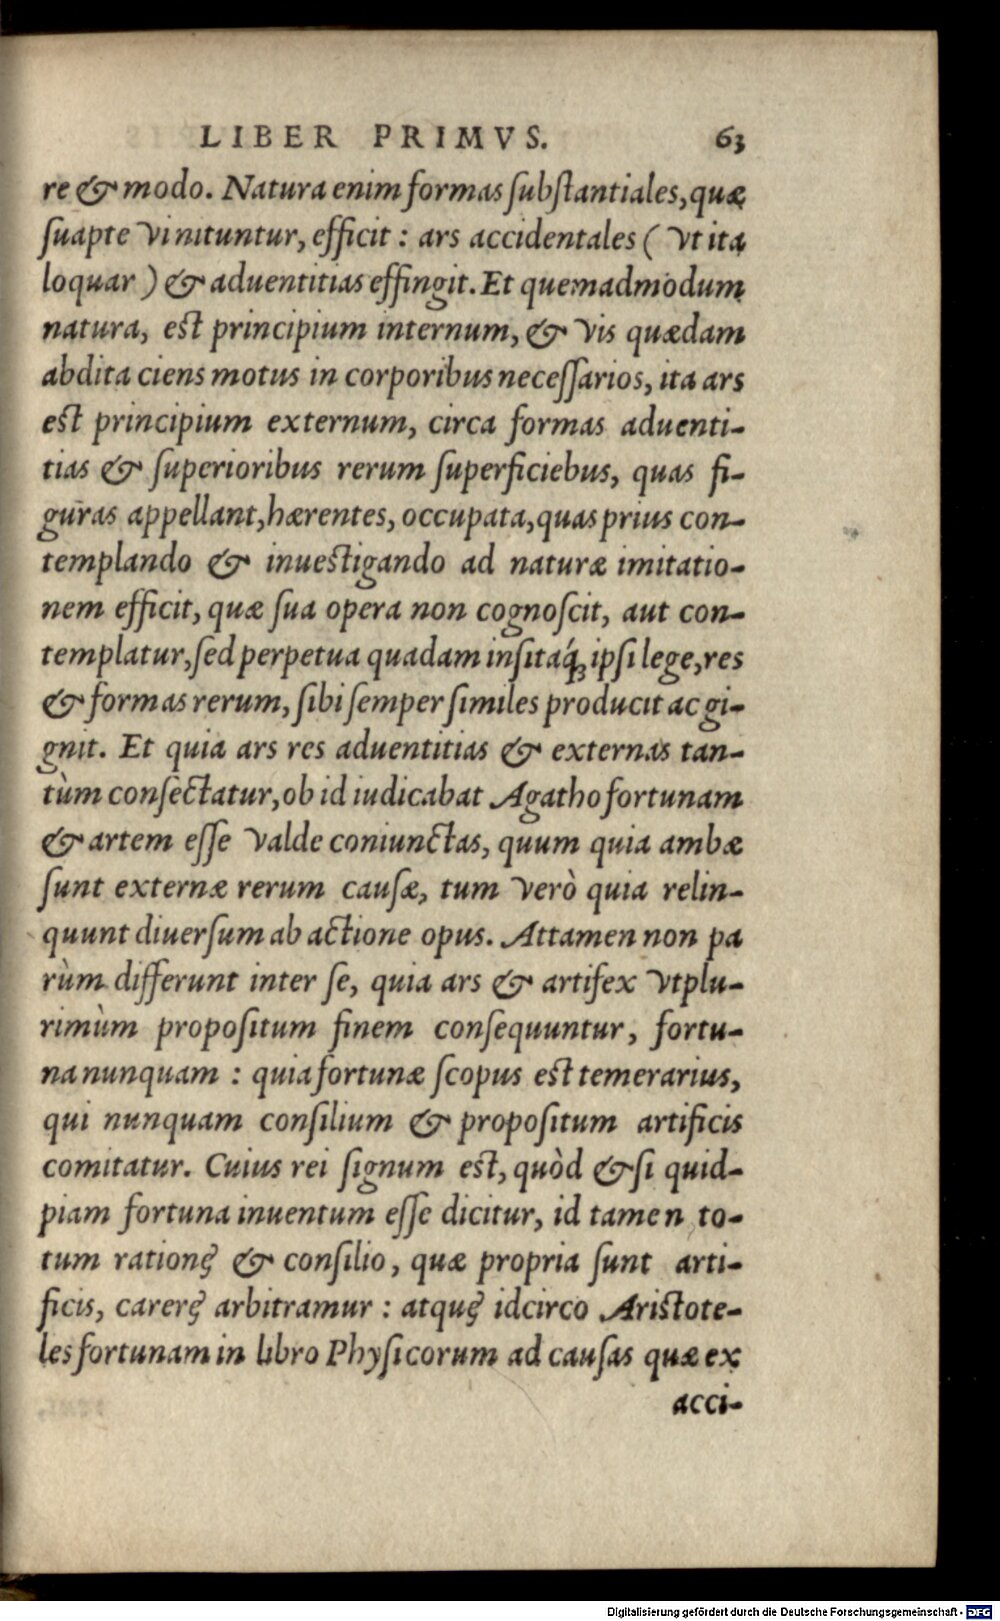 LIBER PRIMVS. 63
re & modo. Natura enim formas ſubſtantiales, quæ
ſuapte vi nituntur, efficit : ars accidentales ( vt ita
loquar ) & aduentitias effingit. Et quemadmodum
natura, est principium internum, & vis quædam
abdita ciens motus in corporibus neceſſarios, ita ars
est principium externum, circa formas aduenti-
tias & ſuperioribus rerum ſuperficiebus, quas fi-
guras appellant, hærentes, occupata, quas prius con-
templando & inuestigando ad naturæ imitatio-
nem efficit, quæ ſua opera non cognoſcit, aut con-
templatur, ſed perpetua quadam inſitaq́; ipſi lege, res
& formas rerum, ſibi ſemper ſimiles producit ac gi-
gnit. Et quia ars res aduentitias & externas tan-
tùm conſectatur, ob id iudicabat Agatho fortunam
& artem eſſe valde coniunctas, quum quia ambæ
ſunt externæ rerum cauſæ, tum verò quia relin-
quunt diuerſum ab actione opus. Attamen non pa
rùm differunt inter ſe, quia ars & artifex vtplu-
rimùm propoſitum finem conſequuntur, fortu-
na nunquam : quia fortunæ ſcopus est temerarius,
qui nunquam conſilium & propoſitum artificis
comitatur. Cuius rei ſignum est, quòd & ſi quid-
piam fortuna inuentum eſſe dicitur, id tamen to-
tum ratione & conſilio, quæ propria ſunt arti-
ficis, carere arbitramur : atque idcirco Aristote-
les fortunam in libro Phyſicorum ad cauſas quæ ex
acci-
Digitalisierung gefördert durch die Deutsche Forschungsgemeinschaft - DFG